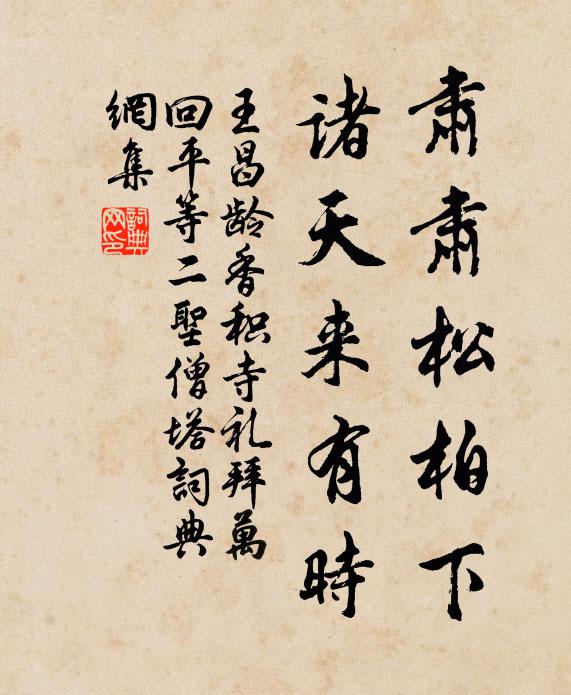 肃肃松柏下
诸天来有時
王昌龄香积寺礼拜萬
回平等二聖僧塔詞典
網集
詞典网印